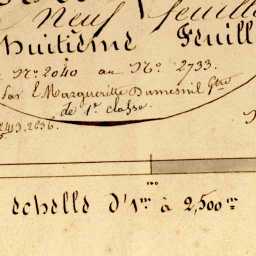 Neuf feuille
huitième Feuill
N.º 2040 au N.º 2733.
Par E Margueritte Dumesnil Gtre
de 1re classe.
2413.2636.
100
echelle d'1m à 2,500m